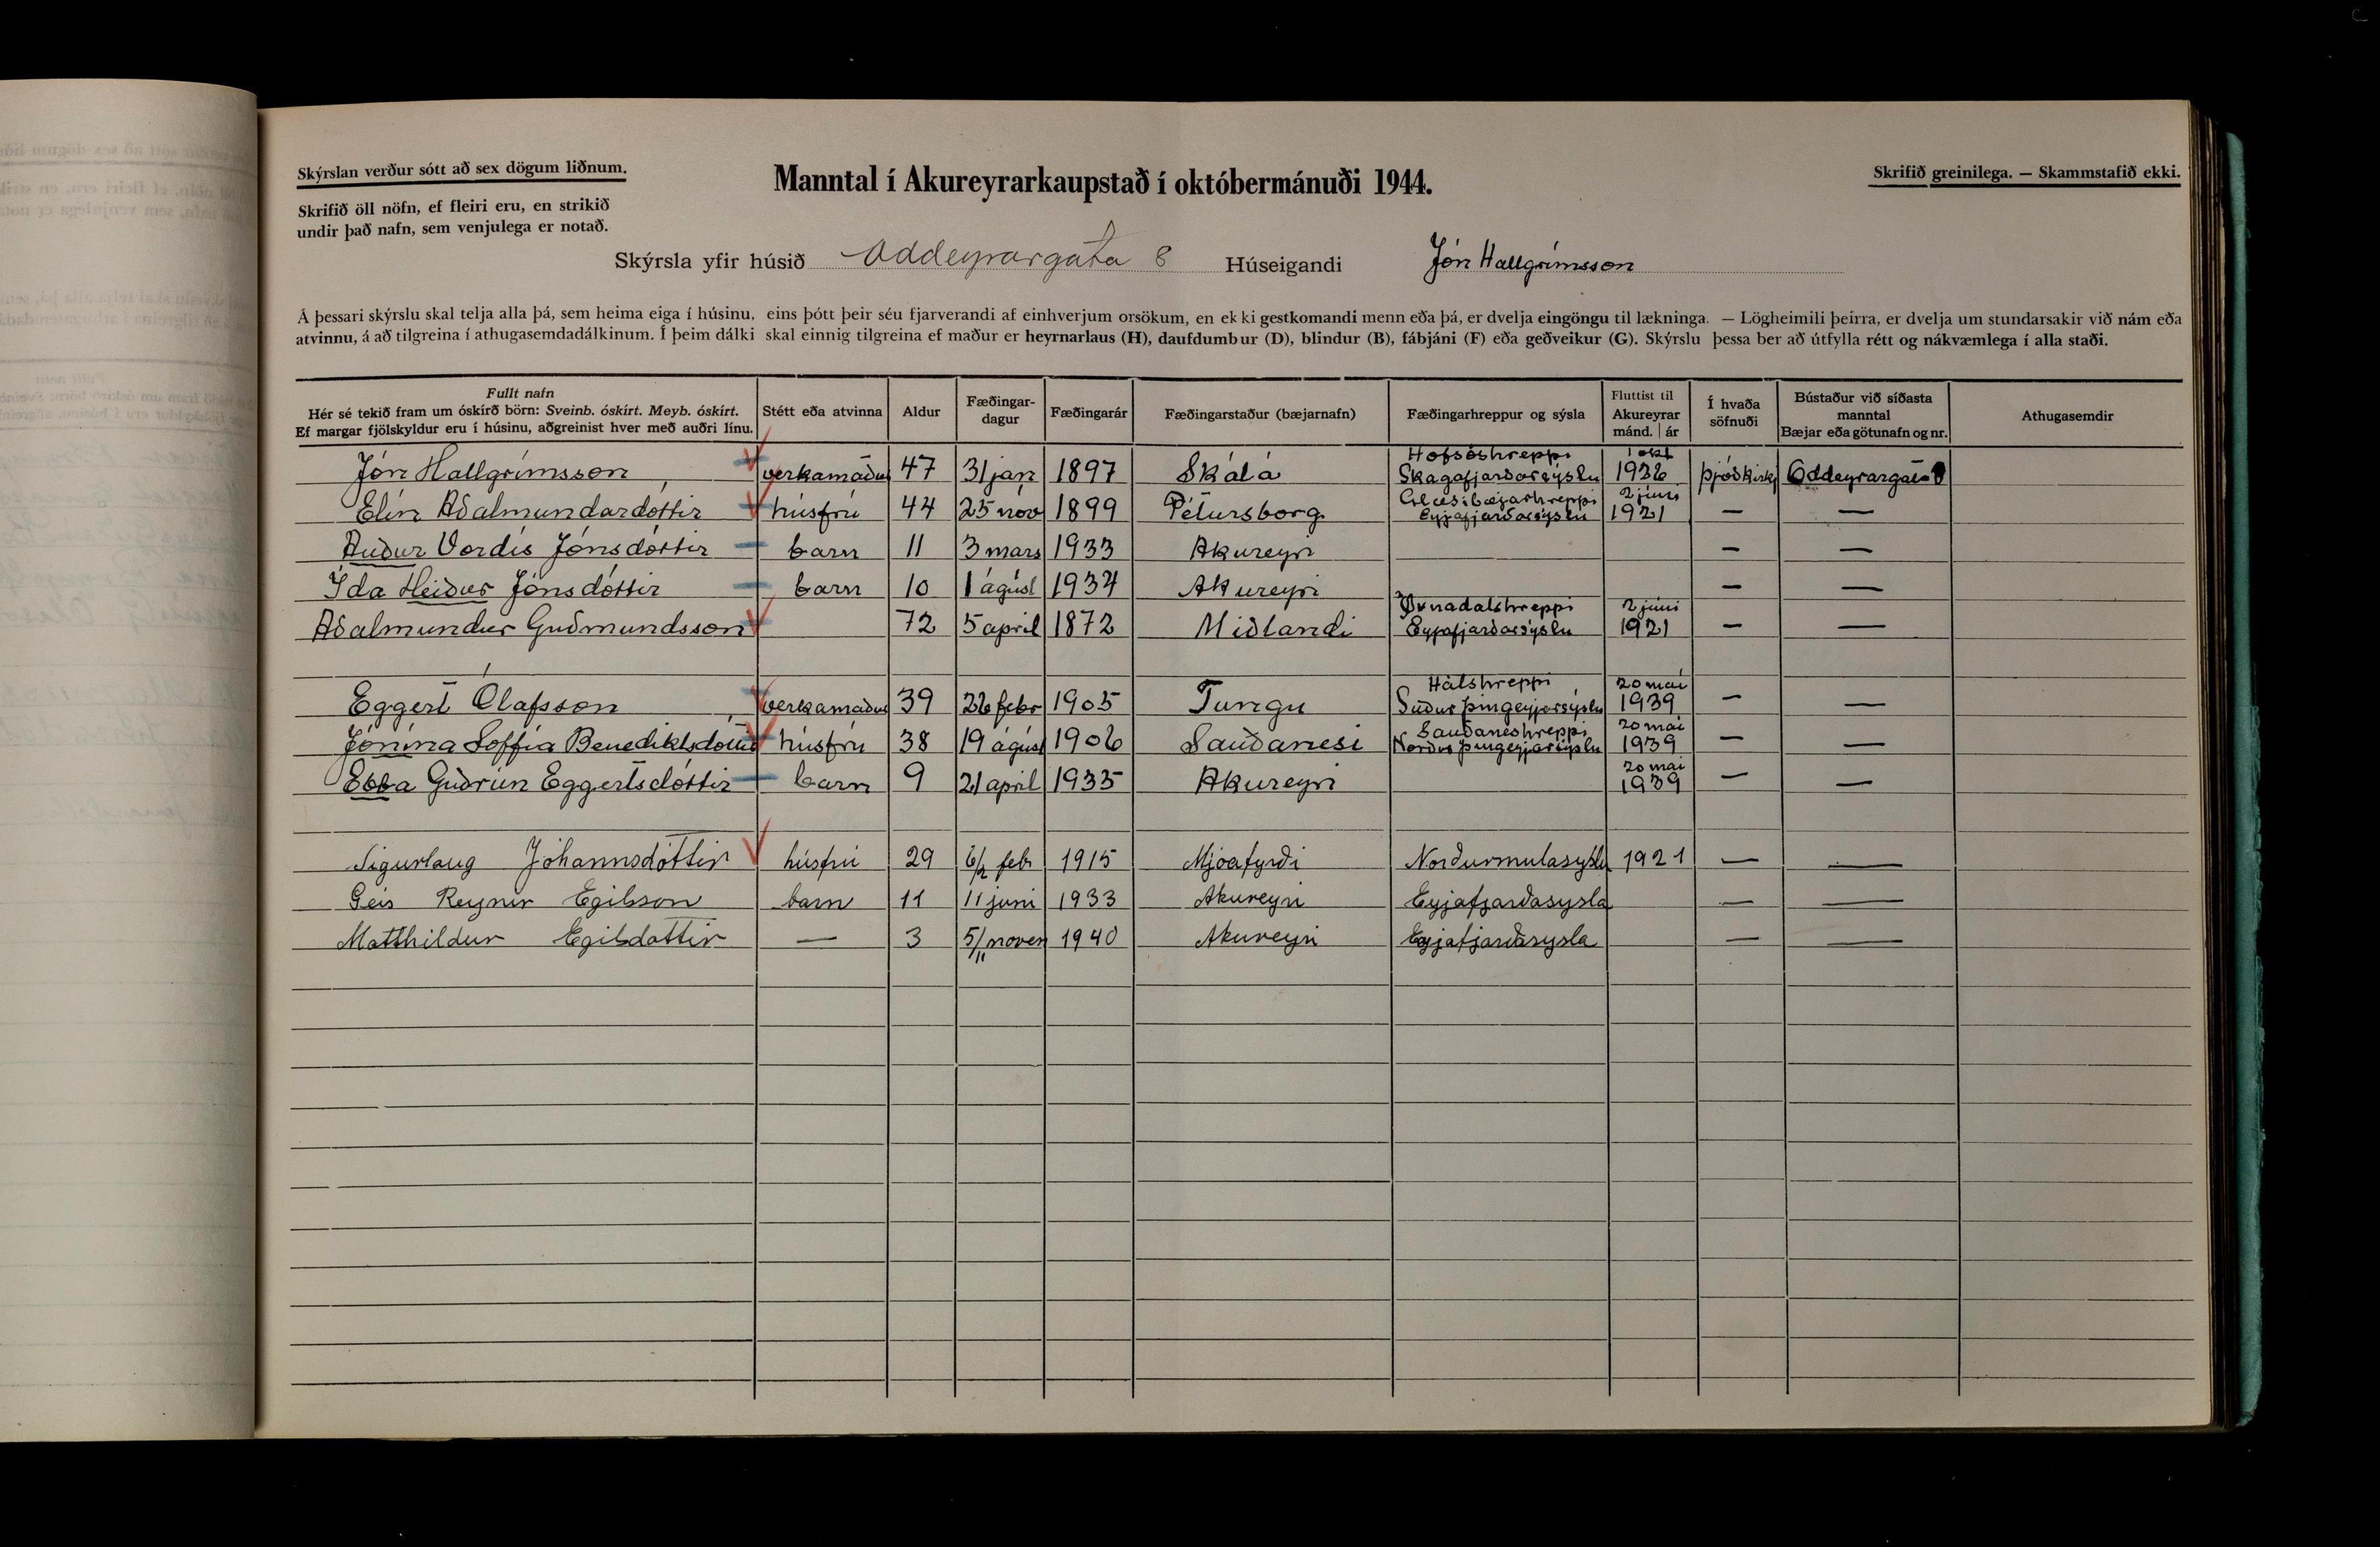 Skýrslan verður sótt að sex dögum liðnum.
Manntal í Akureyrarkaupstað í októbermánuði 1944.
Skrifið greinilega. — Skammstafið ekki.
Skrifið öll nöfn, ef fleiri eru, en strikið
undir það nafn, sem venjulega er notað.
Skýrsla yfir húsið Oddeyrargata 8 Húseigandi Jón Hallgrímsson
Á þessari skýrslu skal telja alla þá, sem heima eiga í húsinu, eins þótt þeir séu fjarverandi af einhverjum orsökum, en ekki gestkomandi menn eða þá, er dvelja eingöngu til lækninga. — Lögheimili þeirra, er dvelja um stundarsakir við nám eða
atvinnu, á að tilgreina í athugasemdadálkinum. Í þeim dálki skal einnig tilgreina ef maður er heyrnarlaus (H), daufdumbur (D), blindur (B), fábjáni (F) eða geðveikur (G). Skýrslu þessa ber að útfylla rétt og nákvæmlega í alla staði.
Fullt nafn
Hér sé tekið fram um óskírð börn: Sveinb. óskírt. Meyb. óskírt.
Ef margar fjölskyldur eru í húsinu, aðgreinist hver með auðri línu.
Stétt eða atvinna
Aldur
Fæðingar-
dagur
Fæðingarár
Fæðingarstaður (bæjarnafn)
Fæðingarhreppur og sýsla
Fluttist til
Akureyrar
mánd. | ár
Í hvaða
söfnuði
Bústaður við síðasta
manntal
Bæjar eða götunafn og nr.
Athugasemdir
Jón Hallgrímsson verkamaður 47 31 jan 1897 Skálá Hofsóshreppi Skagafjarðarsýslu 1 okt 1926 þjóðkirkj Oddeyrargata 8
Elín Aðalmundardóttir húsfrú 44 25 nóv 1899 Pétursborg Glæsibæjarhreppi Eyjafjarðarsýslu 2 júni 1921 — —
Auður Vordís Jónsdóttir barn 11 3 mars 1933 Akureyri — —
Ída Heiður Jónsdóttir barn 10 1 ágúst 1934 Akureyri — —
Aðalmundur Guðmundsson 72 5 april 1872 Miðlandi Öxnadalshreppi Eyjafjarðarsýslu 2 júni 1921 — —
Eggert Ólafsson verkamaður 39 26 febr 1905 Tungu Hálshreppi Suður þingeyjarsýslu 20 mai 1939 — —
Jónína Soffía Benediktsdóttir húsfrú 38 19 ágúst 1906 Sauðanesi Sauðaneshreppi Norður þingeyjarsýslu 20 mai 1939 — —
Ebba Guðrún Eggertsdóttir barn 9 21 apríl 1935 Akureyri 20 mai 1939 — —
Sigurlaug Jóhannsdóttir húsfrú 29 6/2 febr 1915 Mjóafyrði Norðurmulasyslu 1921 — —
Geir Reynir Egilsson barn 11 11 juni 1933 Akureyri Eyjafjarðasysla — —
Matthildur Egilsdottir — 3 5/11 noven 1940 Akureyri Eyjafjarðasysla — —